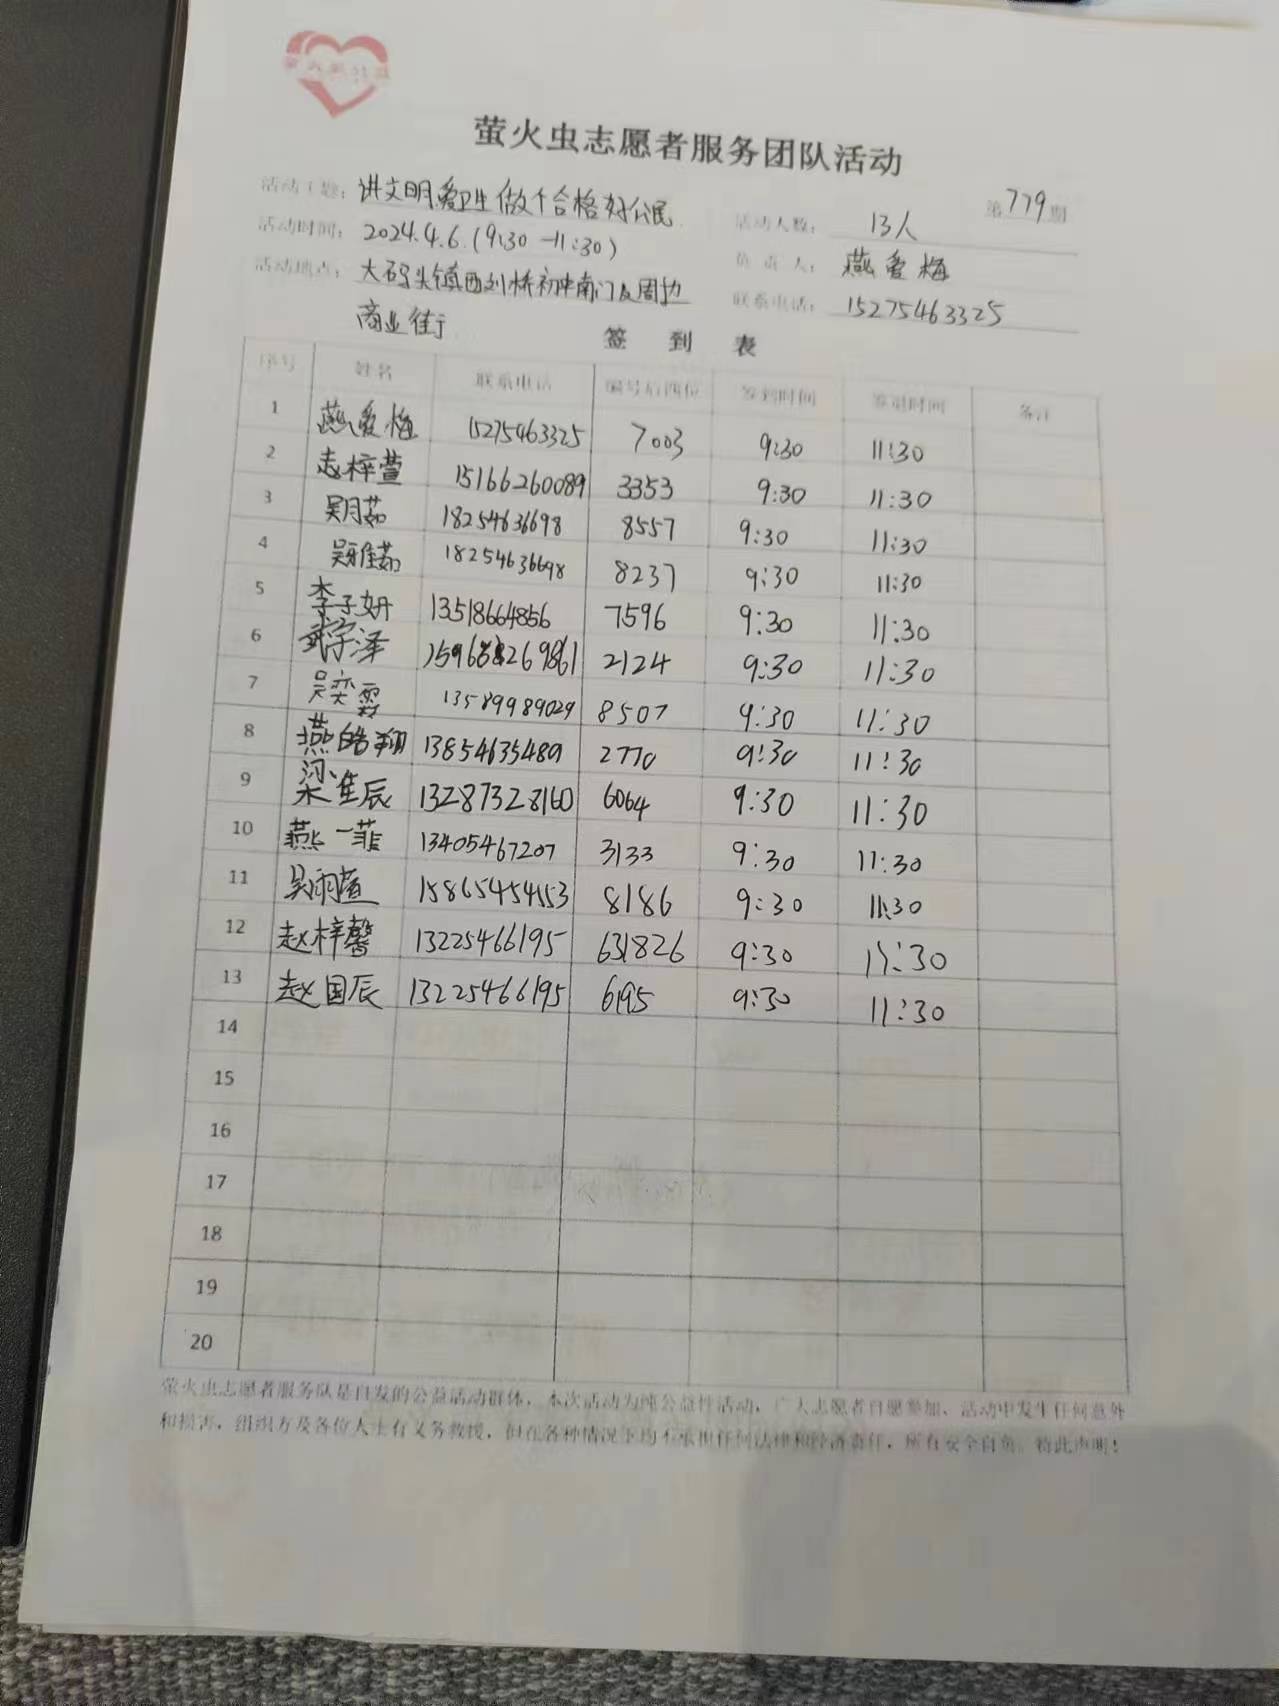 萤火虫志愿者服务团队活动
第779期
活动主题：讲文明爱卫生做个合格好公民
活动人数：13人
活动时间：2024.4.6.(9:30-11:30)
负责人：燕爱梅
活动地点：大码头镇西刘桥初中南门及周边
联系电话：15275463325
商业街
签到表
序号 姓名 联系电话 编号后四位 签到时间 签退时间 备注
1 燕爱梅 15275463325 7003 9:30 11:30
2 赵梓萱 15166260089 3353 9:30 11:30
3 吴月茹 18254636698 8557 9:30 11:30
4 吴雅茹 18254636698 8237 9:30 11:30
5 李子妍 13518664856 7596 9:30 11:30
6 武宇泽 2124 9:30 11:30
7 吴奕霏 13589989029 8507 9:30 11:30
8 燕皓翔 13854635489 2770 9:30 11:30
9 梁准辰 13287328160 6064 9:30 11:30
10 燕一菲 13405467207 3133 9:30 11:30
11 吴雨萱 15865454553 8186 9:30 11:30
12 赵梓馨 13225466195 631826 9:30 11:30
13 赵国辰 13225466195 6195 9:30 11:30
14
15
16
17
18
19
20
萤火虫志愿者服务队是自发的公益活动群体，本次活动为纯公益性活动，广大志愿者自愿参加、活动中发生任何意外
和损害，组织方及各位人士有义务救援，但在各种情况下均不承担任何法律和经济责任，所有安全自负。特此声明！